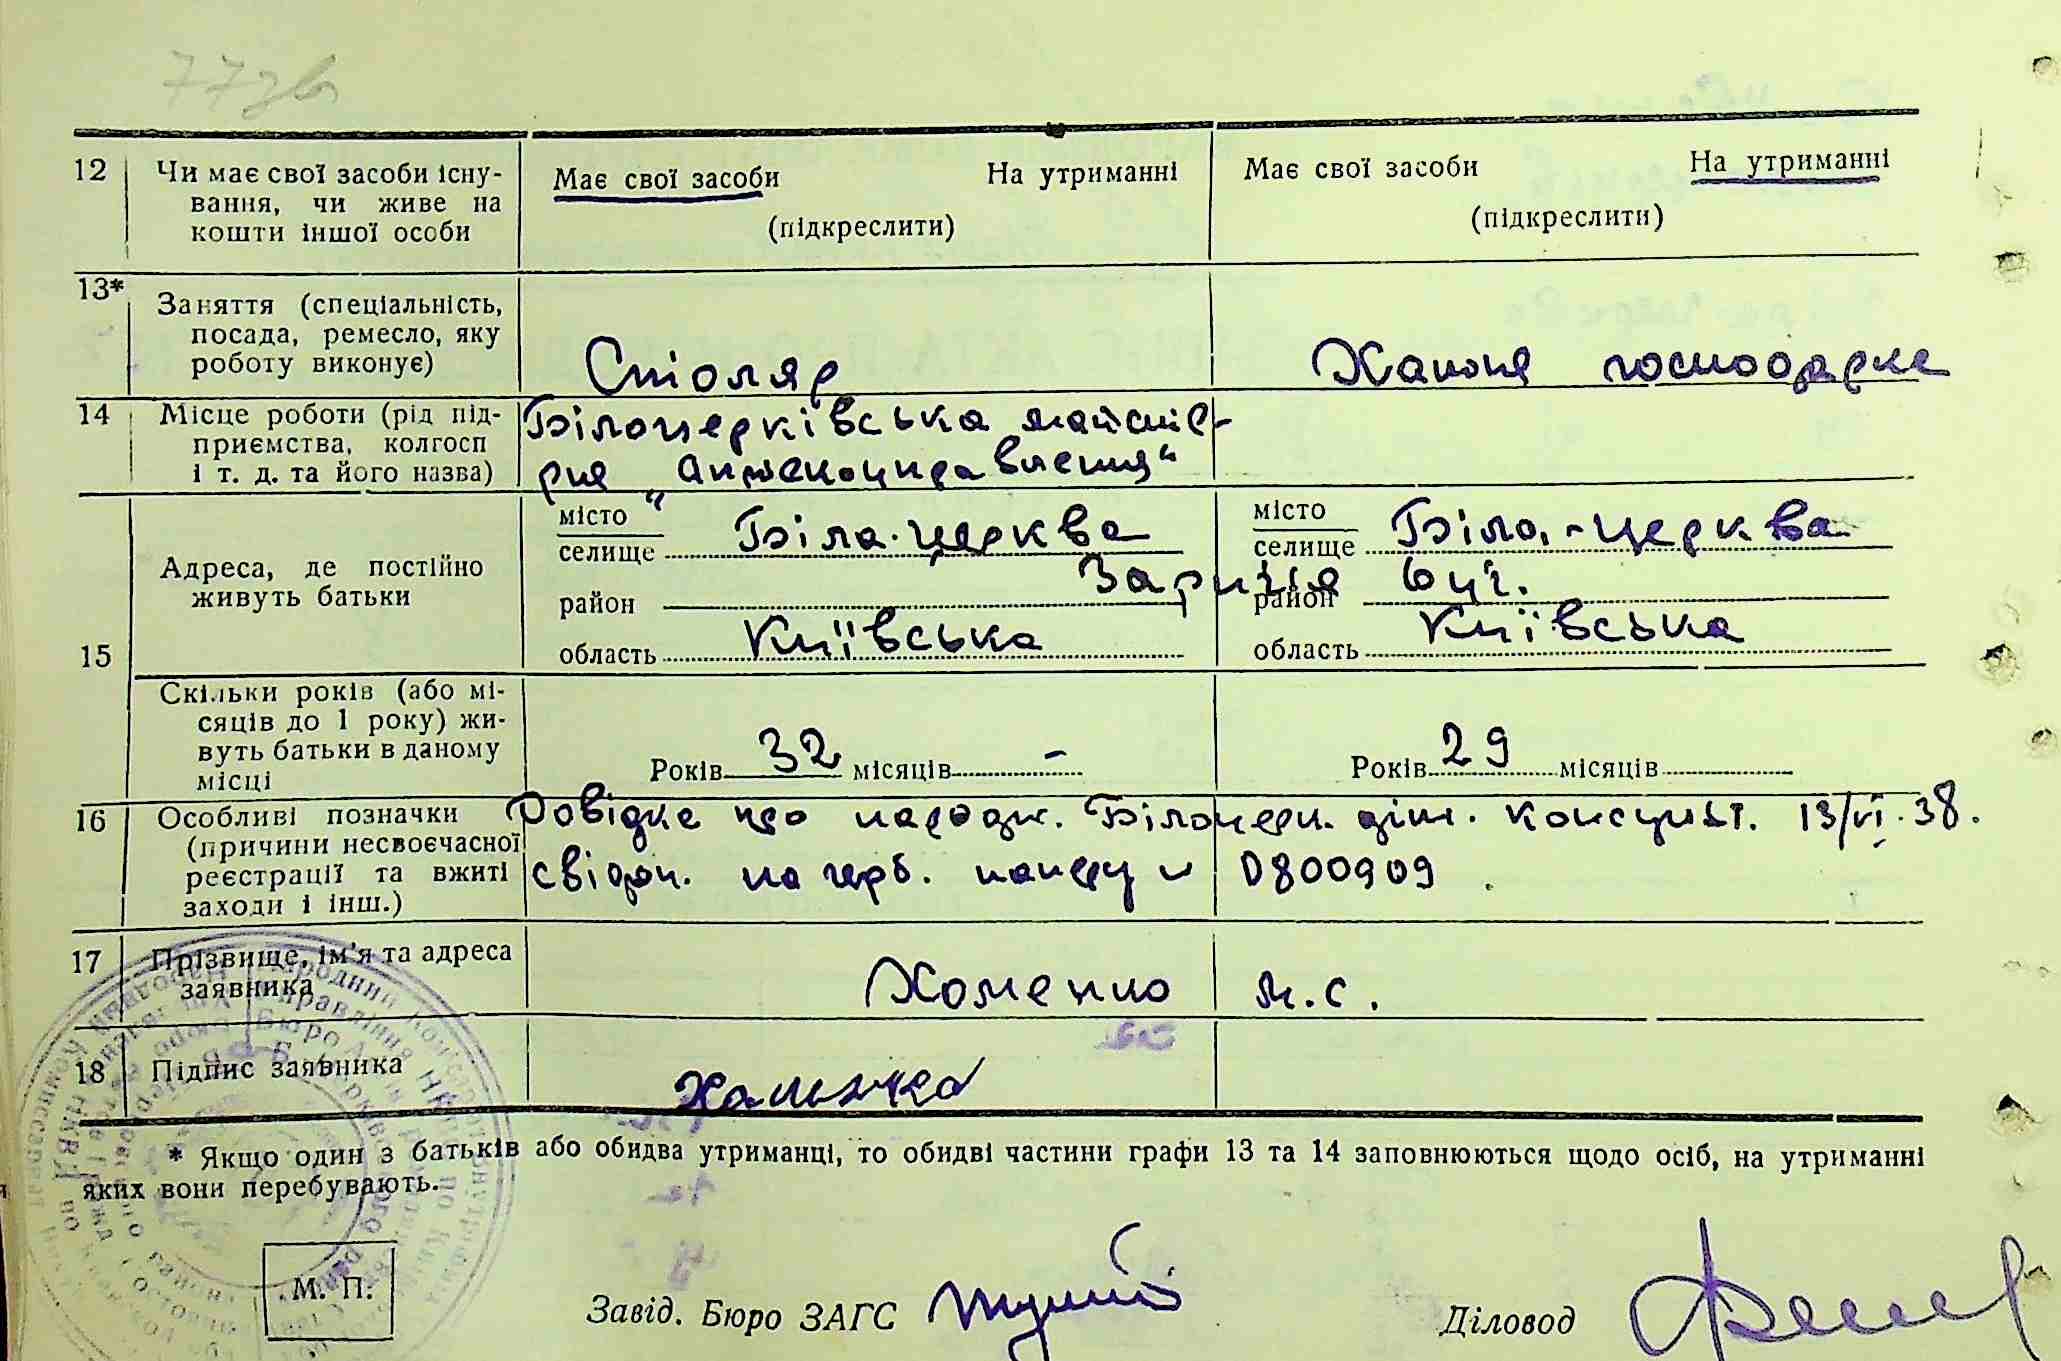 77зв
12 Чи має свої засоби існу- Має свої засоби На утриманні Має свої засоби На утриманні
вання, чи живе на (підкреслити) (підкреслити)
кошти іншої особи
13* Заняття (спеціальність,
посада, ремесло, яку
роботу виконує) Столяр Хатня господарка
14 Місце роботи (рід під- Білоцерківська майстер-
приємства, колгосп
і т. д. та його назва) ня „Аптекоуправления“
місто Біла-церква місто Біла-церква
селище селище
Адреса, де постійно
живуть батьки район район
15 область Київська область Київська
Скільки років (або мі-
сяців до 1 року) жи-
вуть батьки в даному Років 32 місяців - Років 29 місяців
місці
16 Особливі позначки Довідка про народж. Білоцерк. дит. консульт. 13/VI.38.
(причини несвоєчасної
реєстрації та вжиті свідоц. на герб. паперу н 0800909
заходи і інш.)
17 Прізвище, ім'я та адреса
заявника Хоменко М.С.
18 Підпис заявника
* Якщо один з батьків або обидва утриманці, то обидві частини графи 13 та 14 заповнюються щодо осіб, на утриманні
яких вони перебувають.
М. П.
Завід. Бюро ЗАГС Діловод